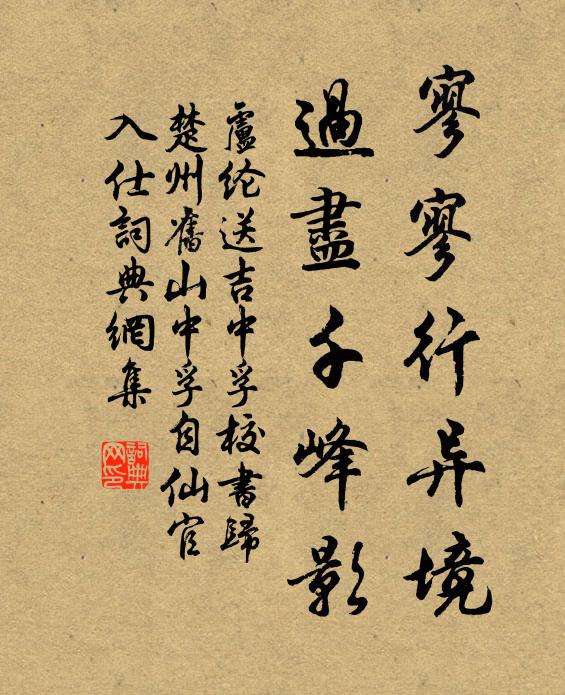 寥寥行异境
過盡千峰影
盧纶送吉中孚校書歸
楚州舊山中孚自仙官
入仕詞典網集
詞典网印